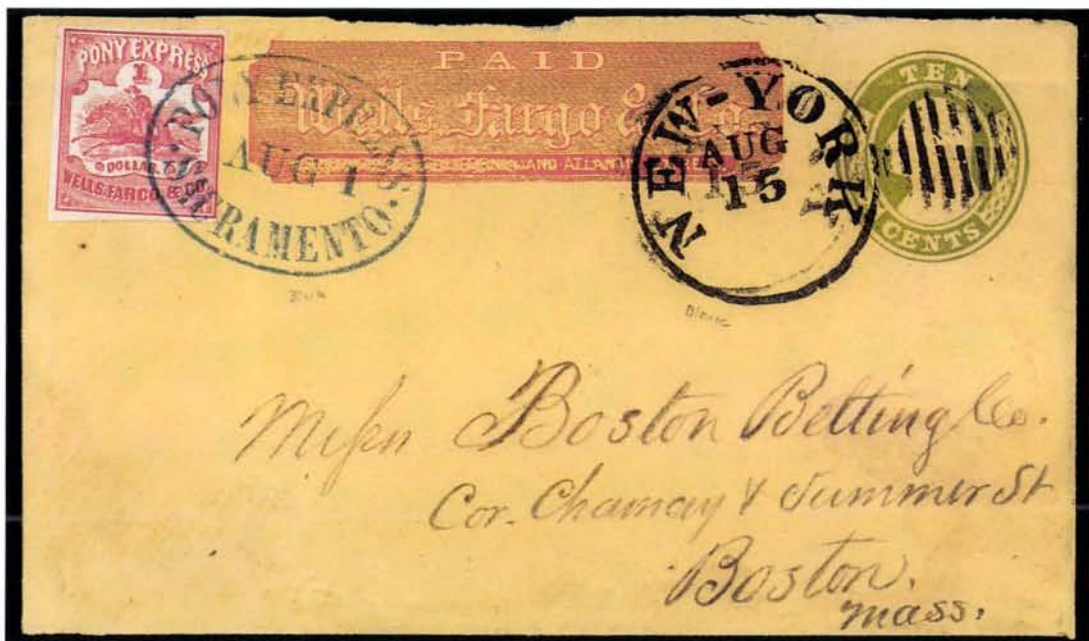 PONY EXPRESS
1
DOLLAR
WELLS, FARGO & CO.
PONY EXPRESS
AUG 1
SACRAMENTO.
PAID
Wells, Fargo & Co.
AND ATLANTIC
NEW-YORK
AUG
15
TEN
CENTS
Blue
Black
Messrs Boston Belting Co.
Cor. Chauncy & Summer St
Boston.
Mass.